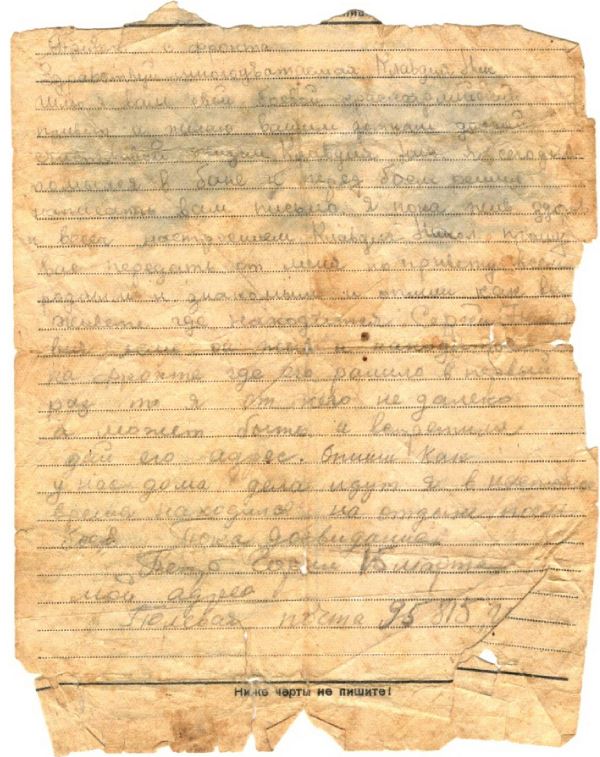 Привет с фронта
Здравствуй многоуважаемая Клавдия Ник
шлю я вам свой
привет и желаю
жизни Клавдия Ник я сегодня
помылся в бане и перед боем решил
написать вам письмо Я пока жив здоров
и весел настроением Клавдия Никол прошу
вас передать от меня по привету всем
родным и знакомым и опиши как вы
живете где находится Сергей
если он жив и находится
на фронте где его ранило в первый
раз то я от него не далеко
а может быть и встретимся
дай его адрес. Опиши как
у нас дома дела идут я в настоящее
время находимся на отдыхе
Пока досвидания
15 марта
мой адрес
Полевая почта 95815
Ниже черты не пишите!